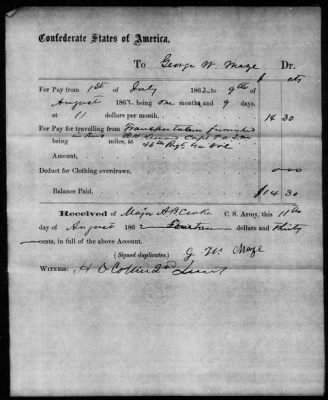 Confederate States of America.
To George W. Maze Dr.
$ cts
For Pay from 1st of July 1862, to 9th of
August 1862, being one months and 9 days,
at 11 dollars per month. 14 30
For Pay for travelling from Transportation furnished
being miles, at
46th Regt Vol
Amount,
Deduct for Clothing overdrawn. 000
Balance Paid. $14 30
Received of Major A B Cooke C. S. Army, this 11th
day of August 1862 Fourteen dollars and Thirty
cents, in full of the above Account.
(Signed duplicates.) G W Maze
Witness: H O Collier 2nd Lieut